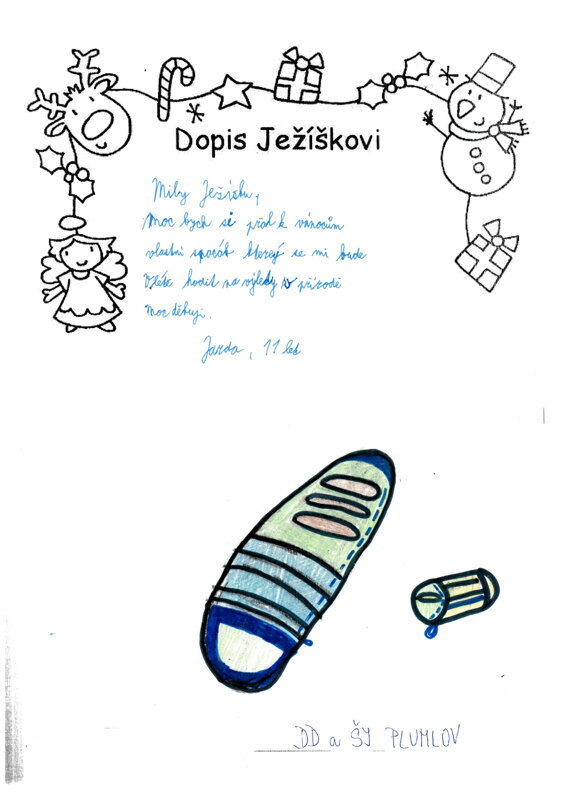 Dopis Ježíškovi
Milý Ježíšku,
moc bych si přál k vánocům
vlastní spacák kterej se mi bude
hodit na výlety v přírodě
moc děkuji.
Jarda, 11 let
DD a ŠJ PLUMLOV